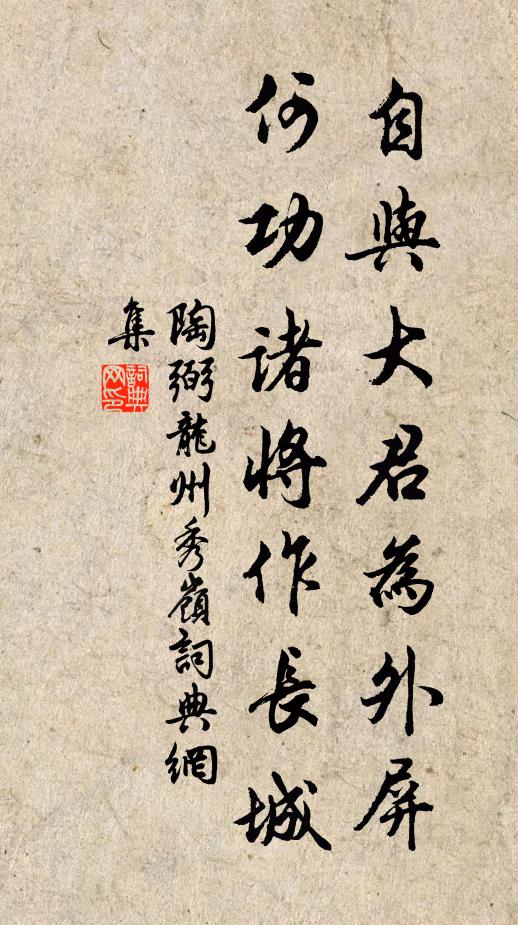 自與大君為外屏
何功諸將作長城
陶弼龍州秀嶺詞典網
集
詞典
网印